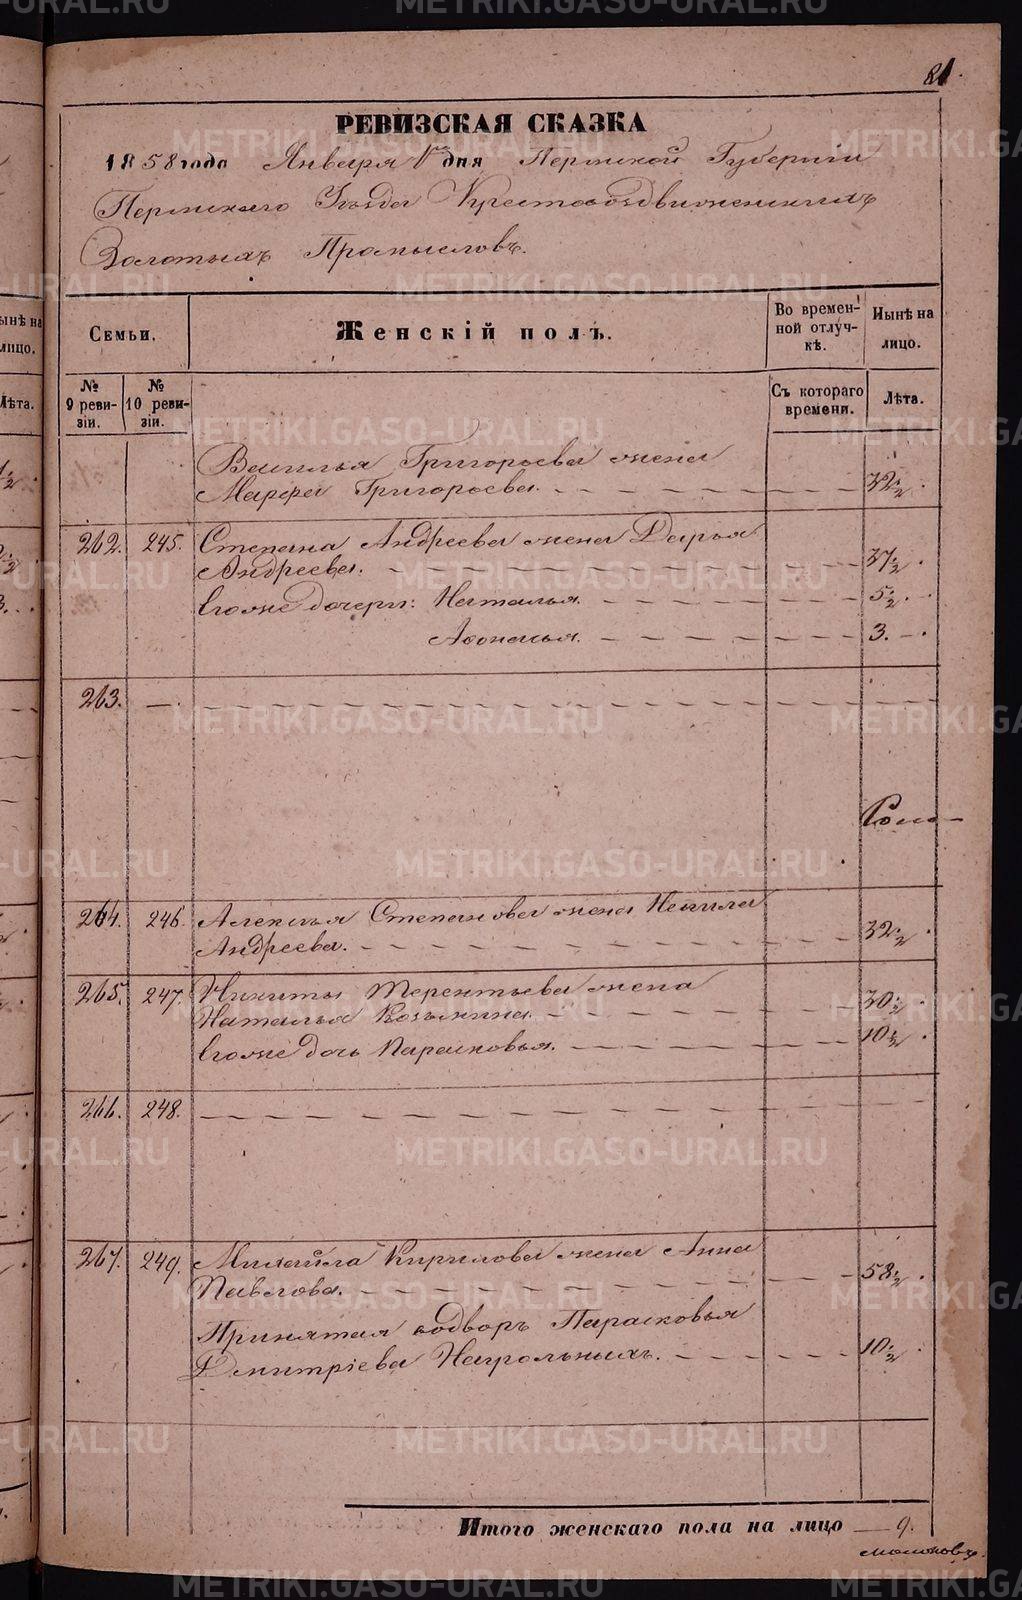 81.
РЕВИЗСКАЯ СКАЗКА
1858 года Января 1 дня Пермской Губернiи
Пермскаго Уезда Крестовоздвиженскихъ
Золотыхъ Промысловъ.
Семьи.
Женскiй полъ.
Во времен-
ной отлуч-
кѣ.
Нынѣ на
лицо.
№
9 реви-
зiи.
№
10 реви-
зiи.
Съ котораго
времени.
Лѣта.
Василья Григорьева жена
Марфа Григорьева. 32 1/2.
262. 245. Степана Андреева жена Дарья
Андреева. 37 1/2.
Ихже дочери: Наталья. 5 1/2.
Афонасья. 3.
263. —
264. 246. Алексея Степанова жена Ненила
Андреева. 32 1/2.
265. 247. Никиты Терентьева жена
Наталья Козьмина. 30 1/2.
Ихже дочь Парасковья. 10 1/2.
266. 248. —
267. 249. Михайла Кирилова жена Анна
Павлова. 58 1/2.
Принятая водворъ Парасковья
Дмитрiева Нагольныхъ. 10 1/2.
Итого женскаго пола на лицо 9.
METRIKI.GASO-URAL.RU